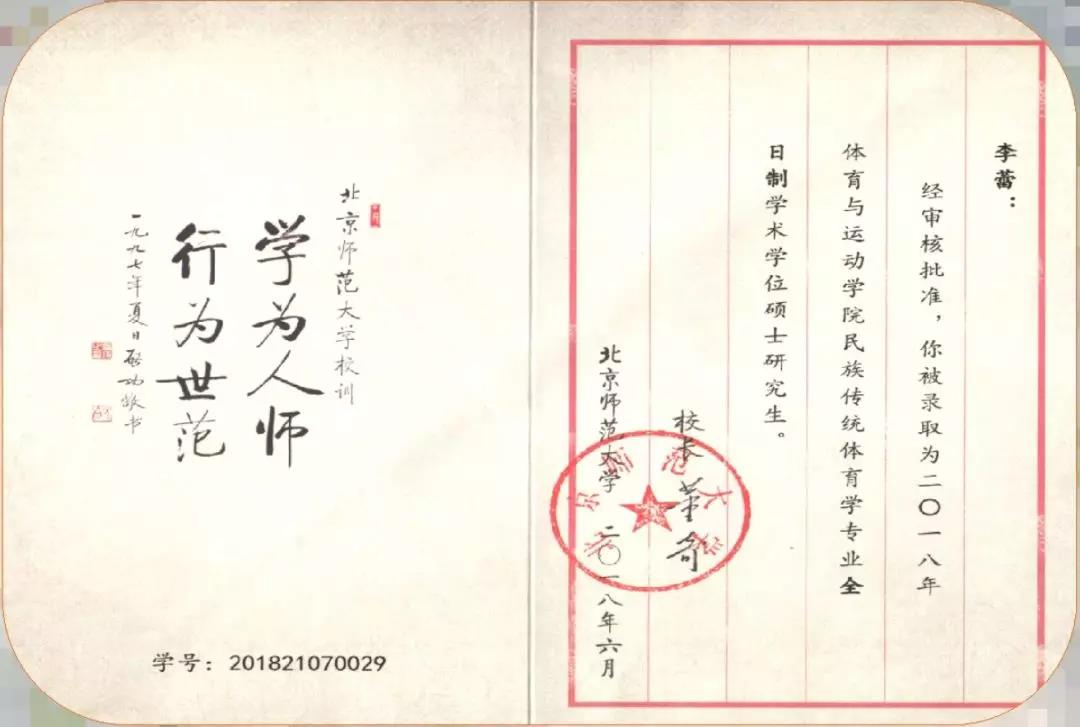 北京师范大学校训
学为人师
行为世范
一九九七年夏日启功敬书
学号：201821070029
李蕾：
经审核批准，你被录取为二〇一八年
体育与运动学院民族传统体育学专业全
日制学术学位硕士研究生。
校长 董奇
北京师范大学 二〇一八年六月
北京师范大学